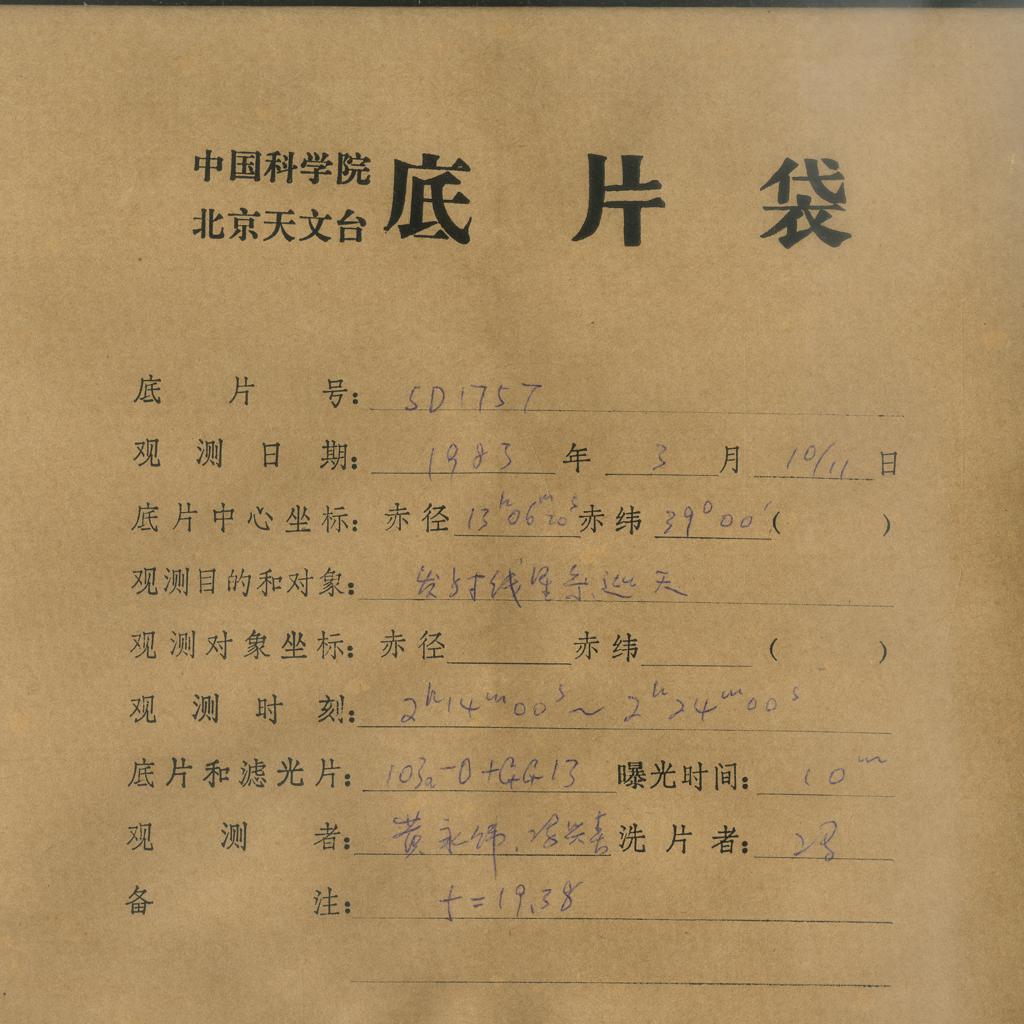 中国科学院
北京天文台
底片袋
底片号: SD1757
观测日期: 1983年3月10/11日
底片中心坐标: 赤径13h06m20s赤纬39°00′( )
观测目的和对象: 发射线星系巡天
观测对象坐标: 赤径 赤纬 ( )
观测时刻: 2h14m00s~2h24m00s
底片和滤光片: 103a-O+GG13 曝光时间: 10m
观测者: 黄永伟. 洗片者:
备注: f=19.38